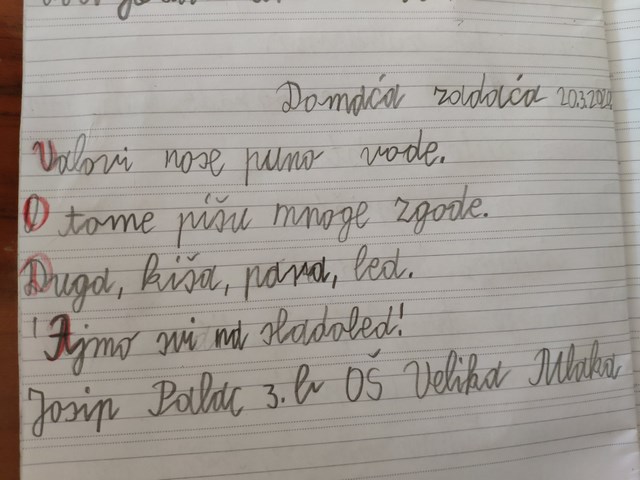 Domaća zadaća 20.3.2020.
Valovi nose puno vode.
O tome pišu mnoge zgode.
Duga, kiša, para, led.
Ajmo svi na sladoled!
Josip Palac 3. b OŠ Velika Mlaka